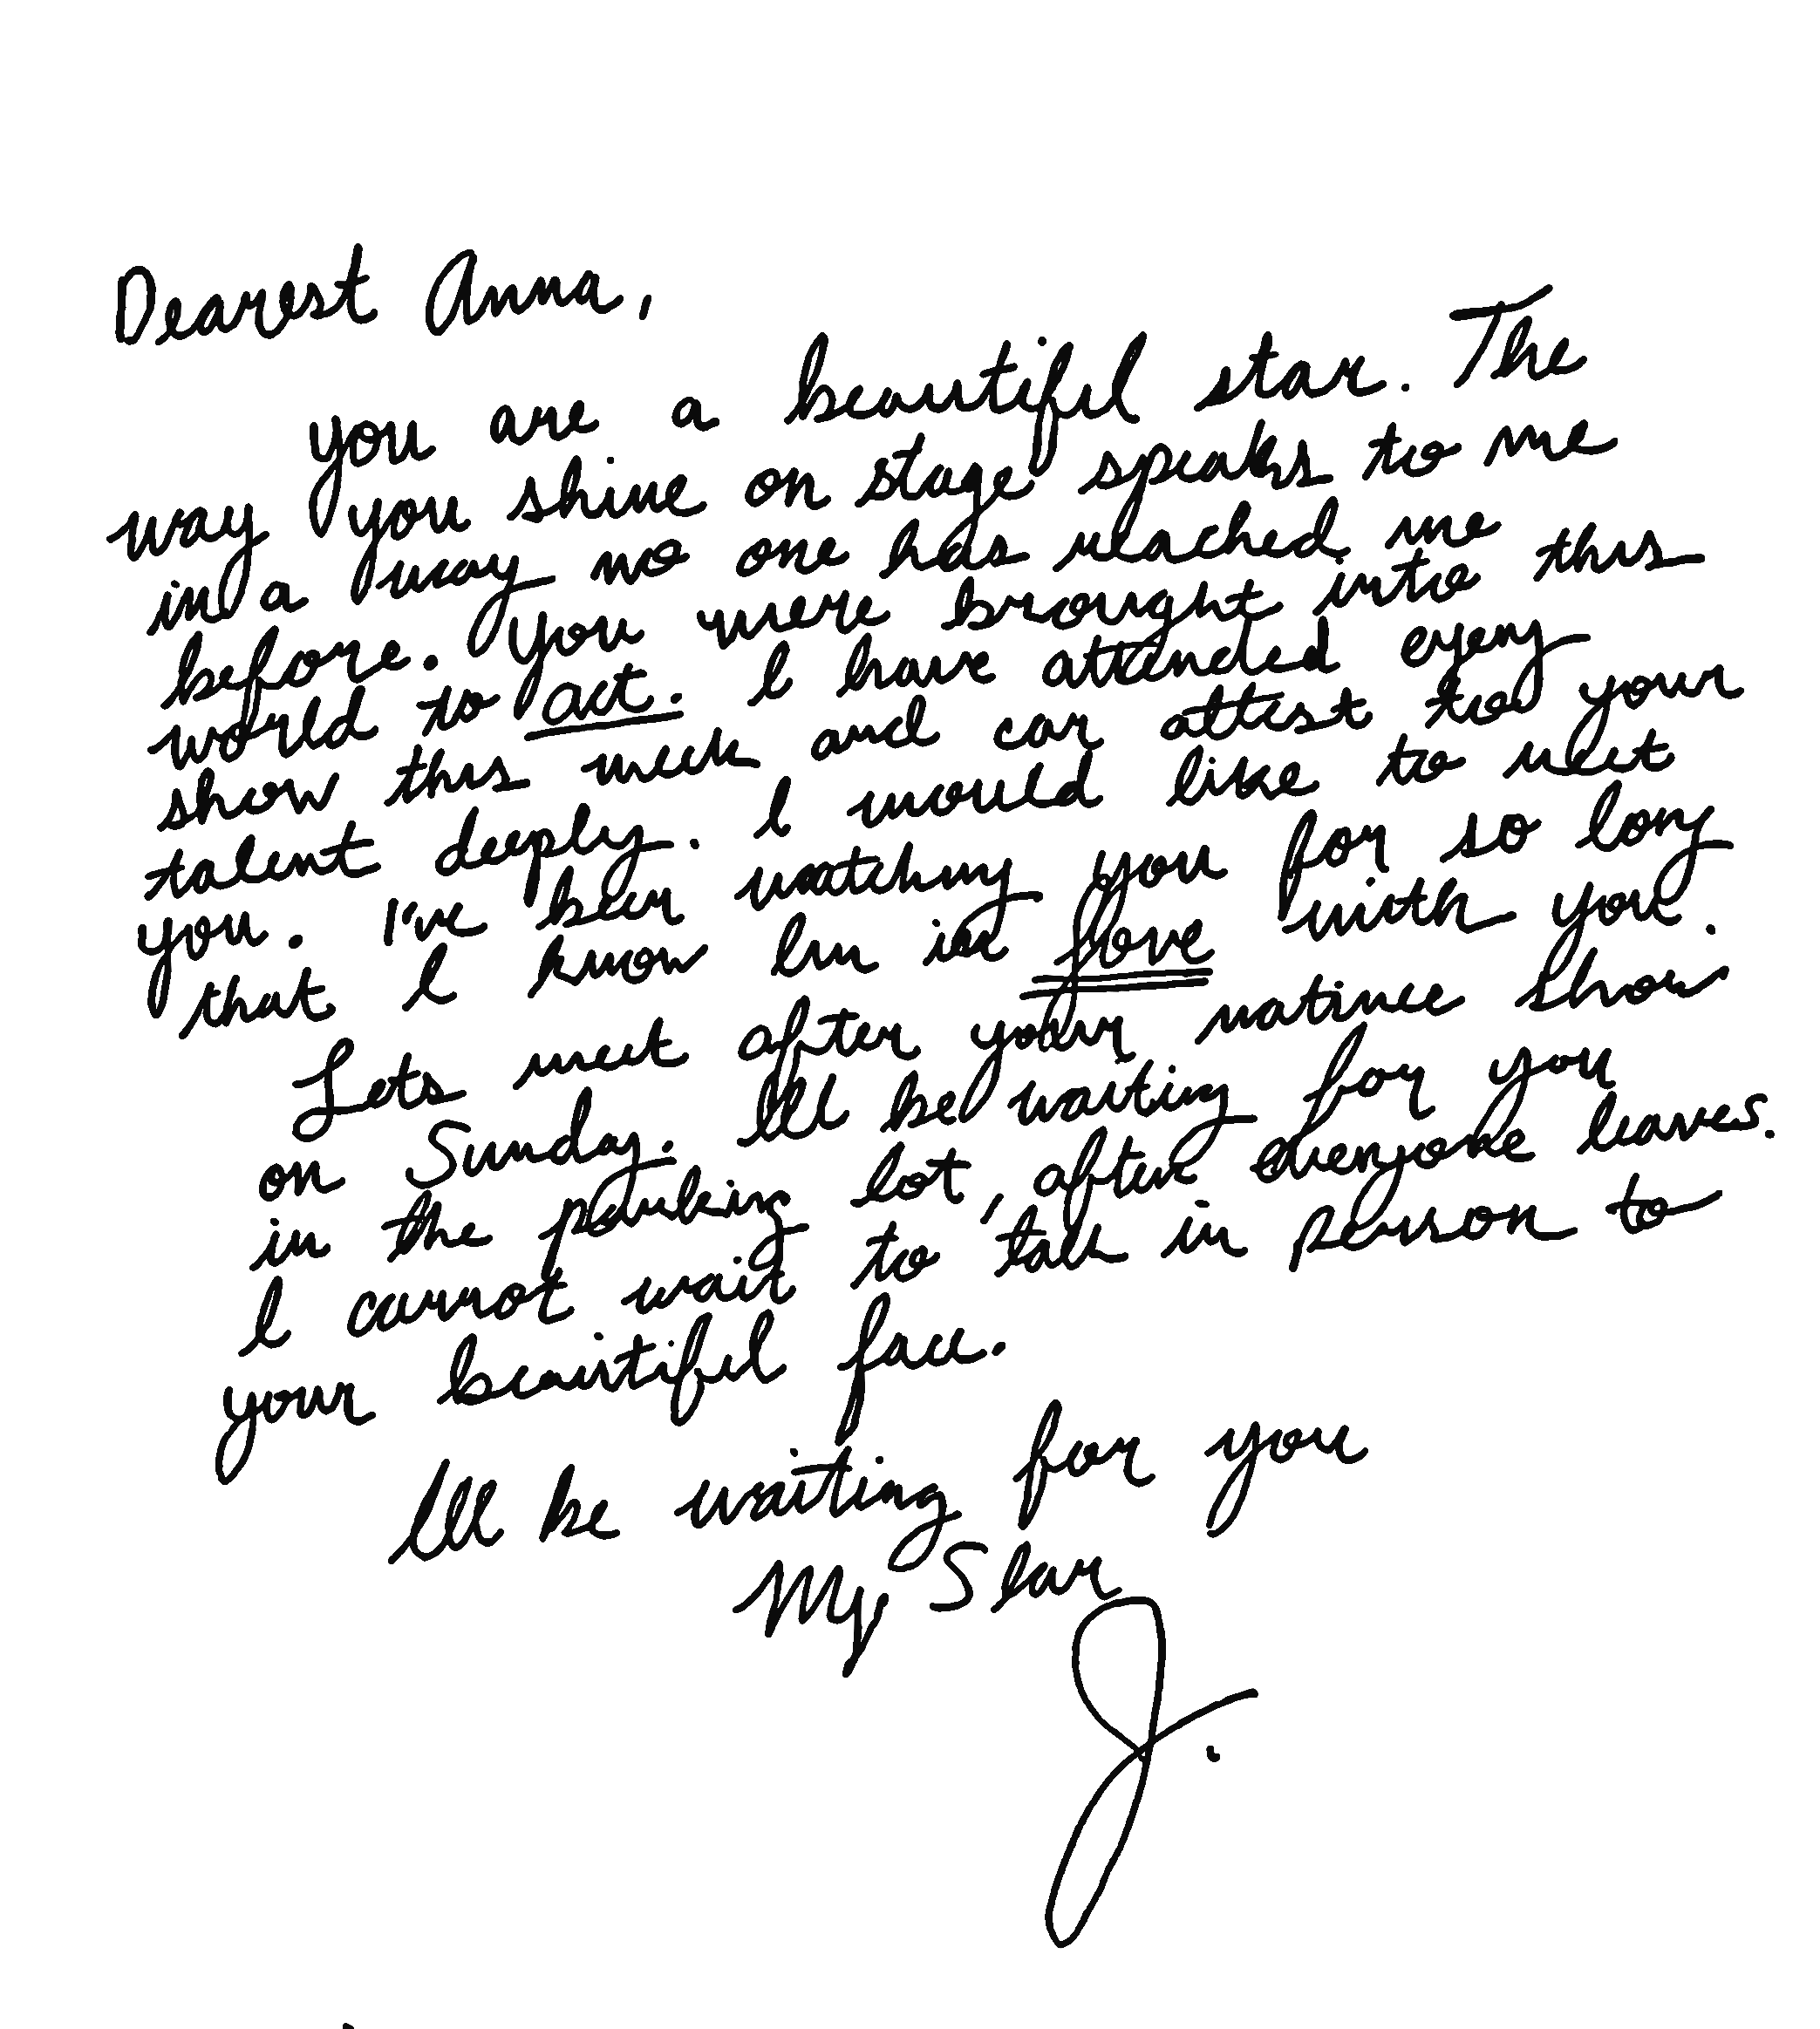 Dearest Anna,
you are a beautiful star. The
way you shine on stage speaks to me
in a way no one has reached me
before. You were brought into this
world to act. I have attended every
show this week and can attest to your
talent deeply. I would like to meet
you. I've been watching you for so long
that I know Im in love with you.
Lets meet after your matinee show
on Sunday. Ill be waiting for you
in the parking lot, after everyone leaves.
I cannot wait to talk in person to
your beautiful face.
Ill be waiting for you
My Star
J.